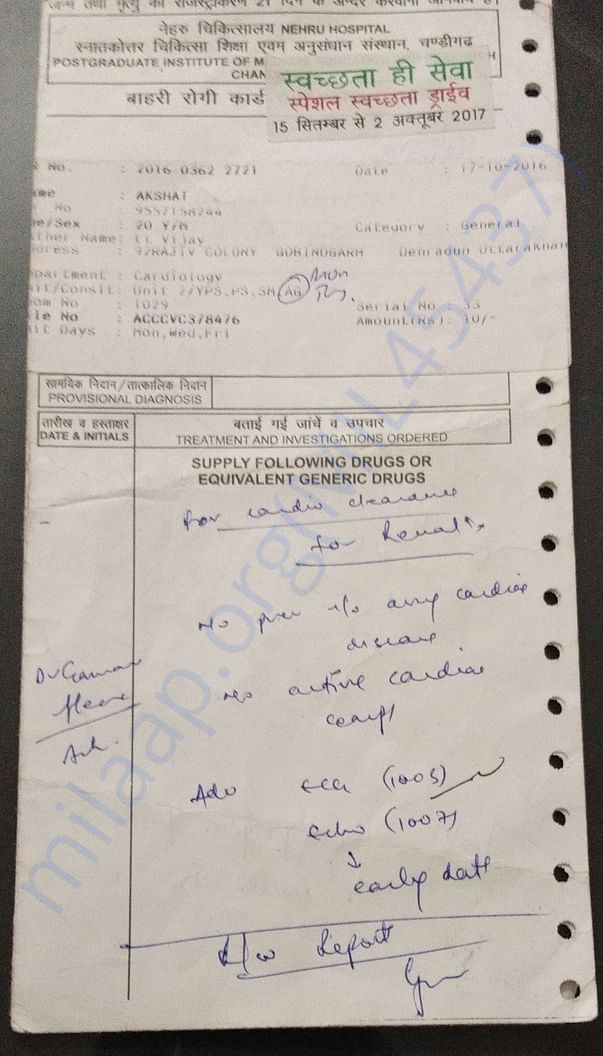 जन्म तथा मृत्यु का राजस्ट्रीकरण 21 दिन के अन्दर करवाना
नेहरु चिकित्सालय NEHRU HOSPITAL
स्नातकोत्तर चिकित्सा शिक्षा एवम अनुसंधान संस्थान, चण्डीगढ
POSTGRADUATE INSTITUTE OF M
CHAN
स्वच्छता ही सेवा
स्पेशल स्वच्छता ड्राईव
15 सितम्बर से 2 अक्तूबर 2017
बाहरी रोगी कार्ड
No. : 2016 0362 2721 Date : 17-10-2016
me : AKSHAT
No : 9557158244
e/Sex : 20 Y/M Category : General
ther Name: Lt Vijay
ress : 92RAJIV COLONY GOBINDGARH Dehradun Uttarakhan
partment : Cardiology
it/Conslt: Unit 2/YPS,PS,SM, AG Mon
om No : 1029 Serial No 33
le No : ACCCVC378476 Amount(Rs): 10/-
it Days : Mon,Wed,Fri
सामयिक निदान/तात्कालिक निदान
PROVISIONAL DIAGNOSIS
तारीख व हस्ताक्षर बताई गई जांचें व उपचार
DATE & INITIALS TREATMENT AND INVESTIGATIONS ORDERED
SUPPLY FOLLOWING DRUGS OR
EQUIVALENT GENERIC DRUGS
for cardio clearance
for Renal Tx
No prev h/o any cardiac
disease
No active cardiac
Adv ECG (1005)
Echo (1007)
↓
early date
R/w Report
milaap.org(MIL454371)